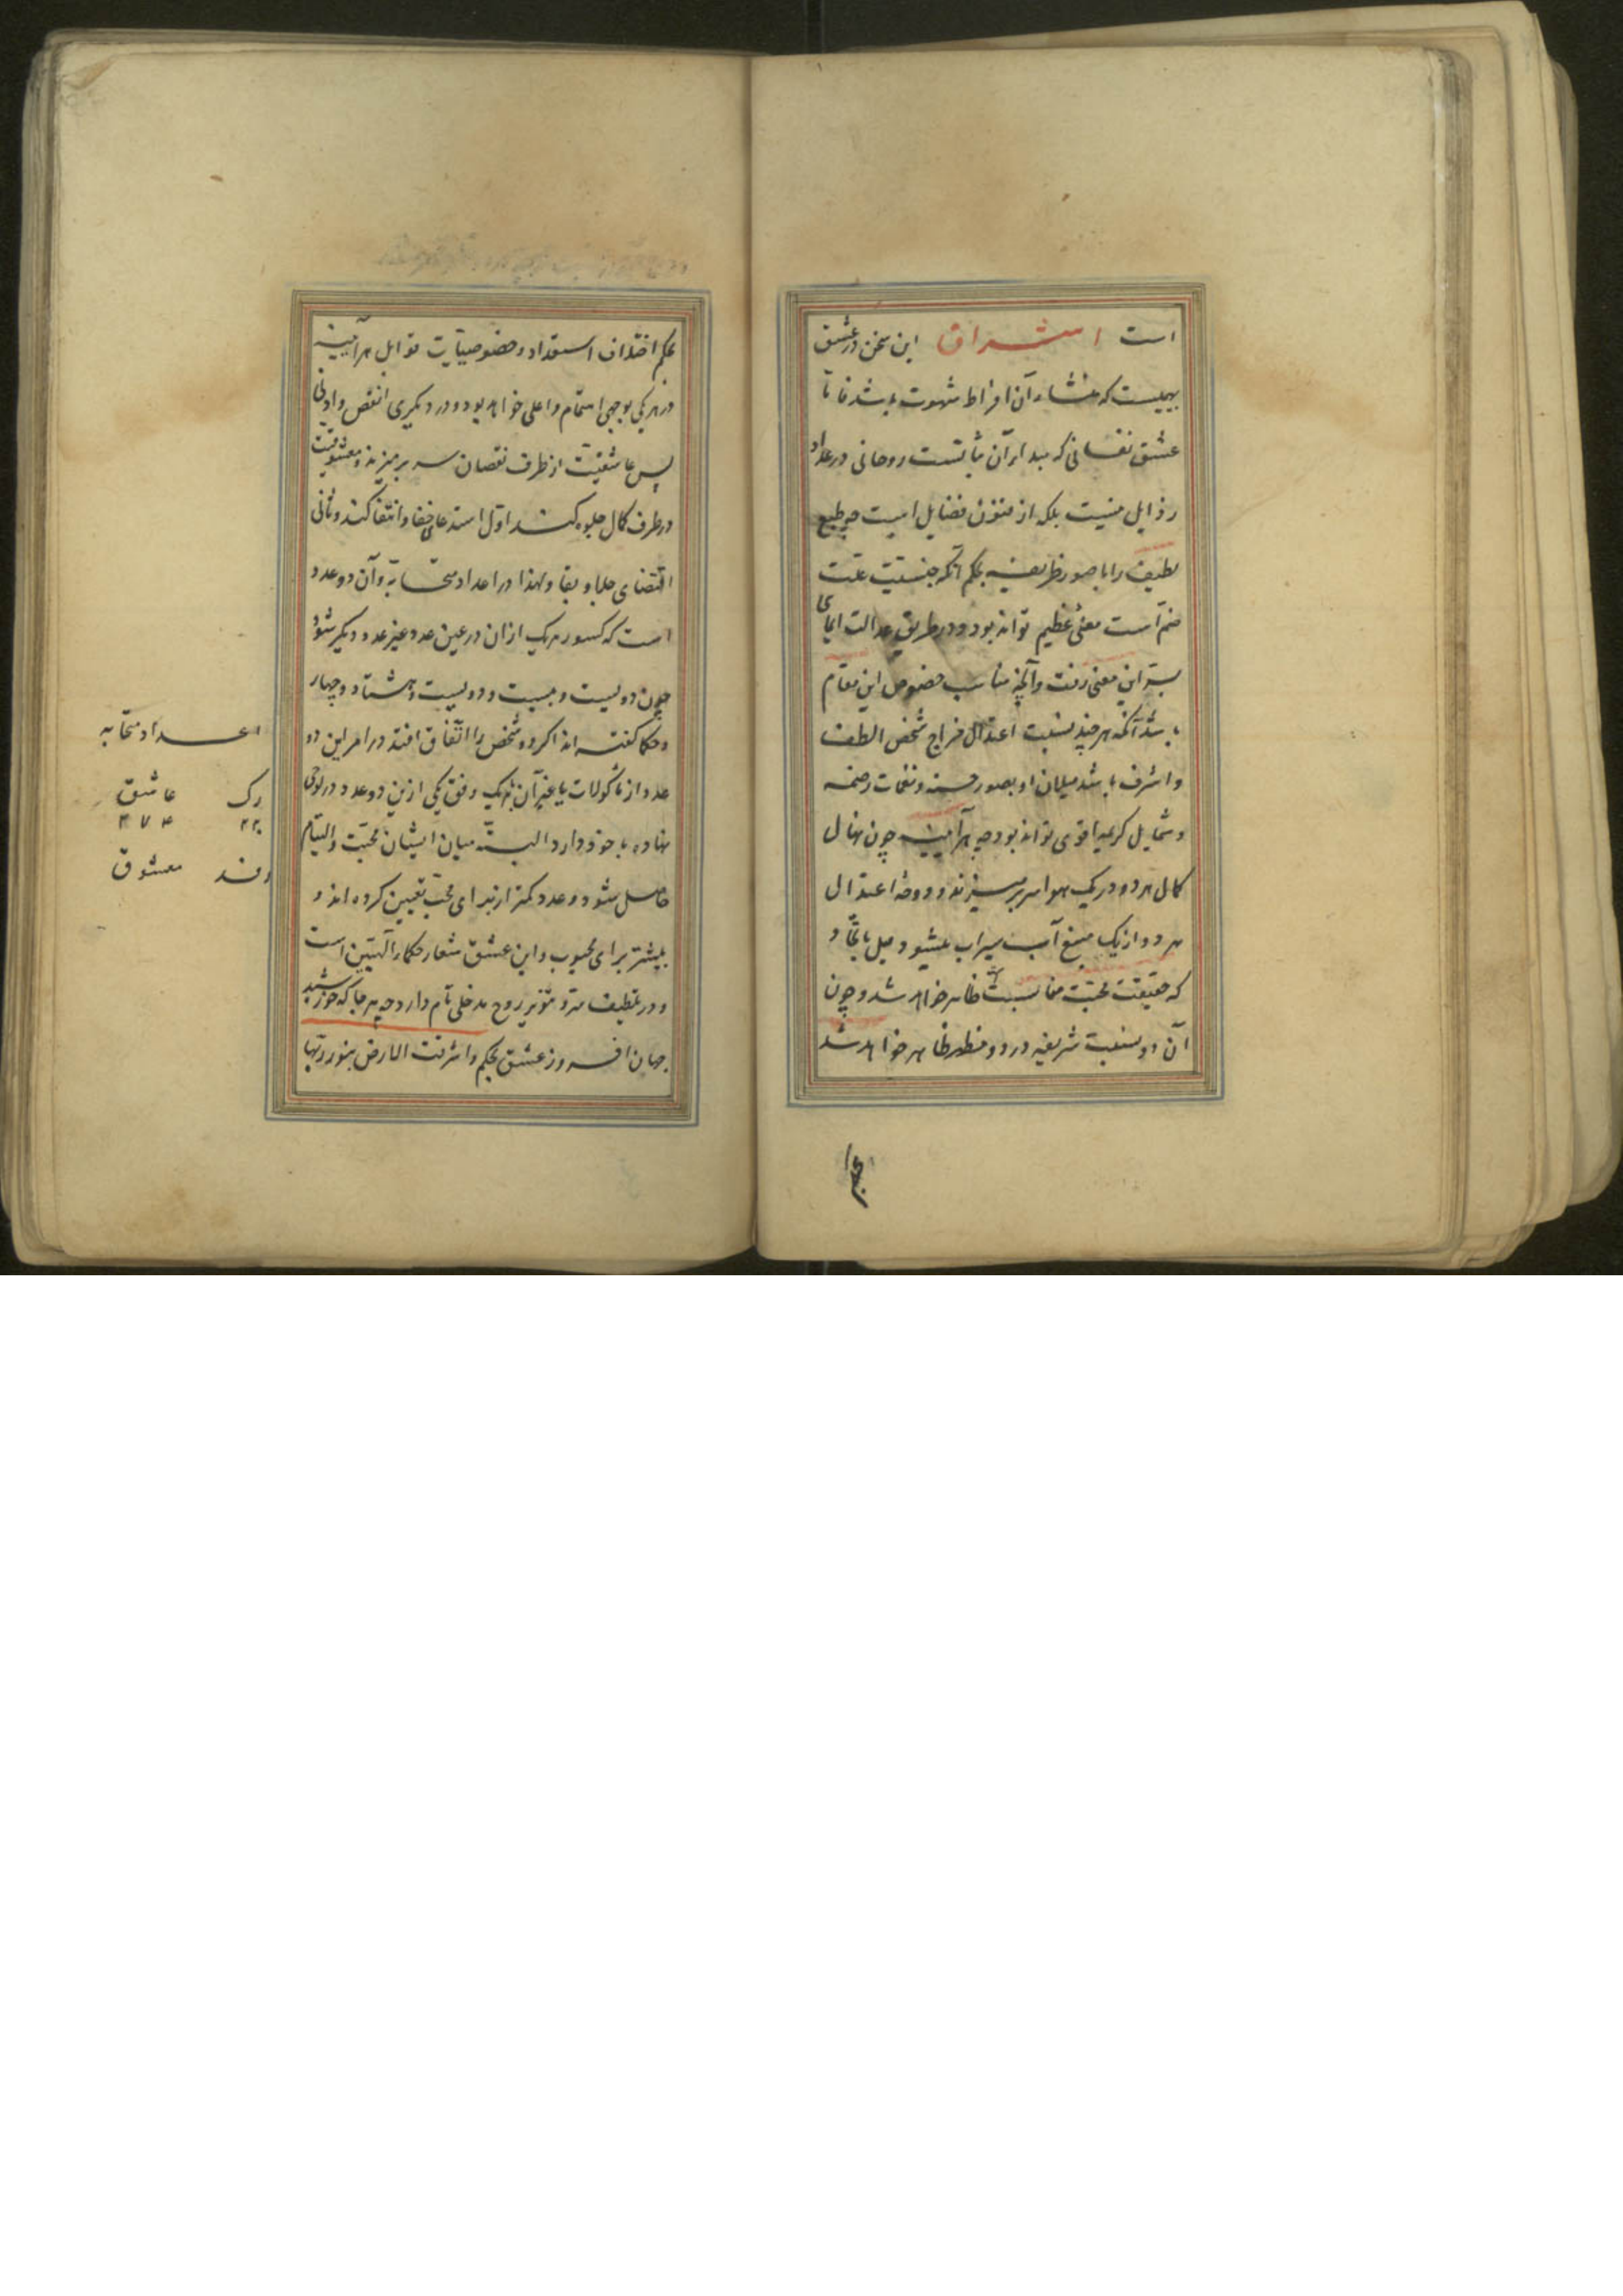 است اشراق این سخن در عشق
بهیمیست که منشاء آن افراط شهوت باشد فاما
عشق نفسانی که مبداء آن تناسبت روحانی در عداد
رذایل نیست بلکه از فنون فضایل است چه طبع
لطیف را با صور ظریفه بحکم آنکه جنسیت علت
ضم است معنی عظیم تواند بود و در طریق عدالت ایمای
بسر این معنی رفت و آنچه مناسب خصوص این مقام
باشد آنکه هر چند نسبت اعتدال مزاج شخص الطف
و اشرف باشد میلان او بصور حسنه و نغمات رخیمه
و شمایل کریمه اقوی تواند بود چه هرآینه چون نهال
کمال هر دو در یک هوا سر برمیزند و روضهٔ اعتدال
هر دو از یک منبع آب سیراب میشود میل باتحاد
که حقیقت محبت است ظاهر خواهد شد و چون
آن دو نسبت شریفه در دو مظهر ظاهر خواهد شد
بحکم
بحکم اختلاف استعداد و خصوصیات قوابل هرآینه
در هر یکی بوجهی اتم و اعلی خواهد بود و در دیگری انقص و ادنی
پس عاشقیت از طرف نقصان سر برمیزند و معشوقیت
در طرف کمال جلوه کند اول استدعای خفا و انتفا کند و ثانی
اقتضای جلا و بقا و لهذا در اعداد متحابه و آن دو عدد
است که کسور هر یک ازان در عین عدد غیر عدد دیگر شود
چون دویست و بیست و دویست و هشتاد و چهار
و حکما گفته اند اگر دو شخص را اتفاق افتد در امر این دو
عدد از ماکولات یا غیر آن یا هر یک وفق یکی ازین دو عدد در لوحی
نهاده با خود دارد البته میان ایشان محبت و التیام
حاصل شود و عدد کمتر از برای محب تعیین کرده اند و
بیشتر برای محبوب و این عشق شعار حکماء الهیین است
و در تلطیف سر و تنویر روح مدخلی تام دارد چه هر جا که خورشید
جهان افروز عشق بحکم و اشرقت الارض بنور ربها
اعداد متحابه
رک عاشق
۲۲۰ ۲۸۴
رفد معشوق